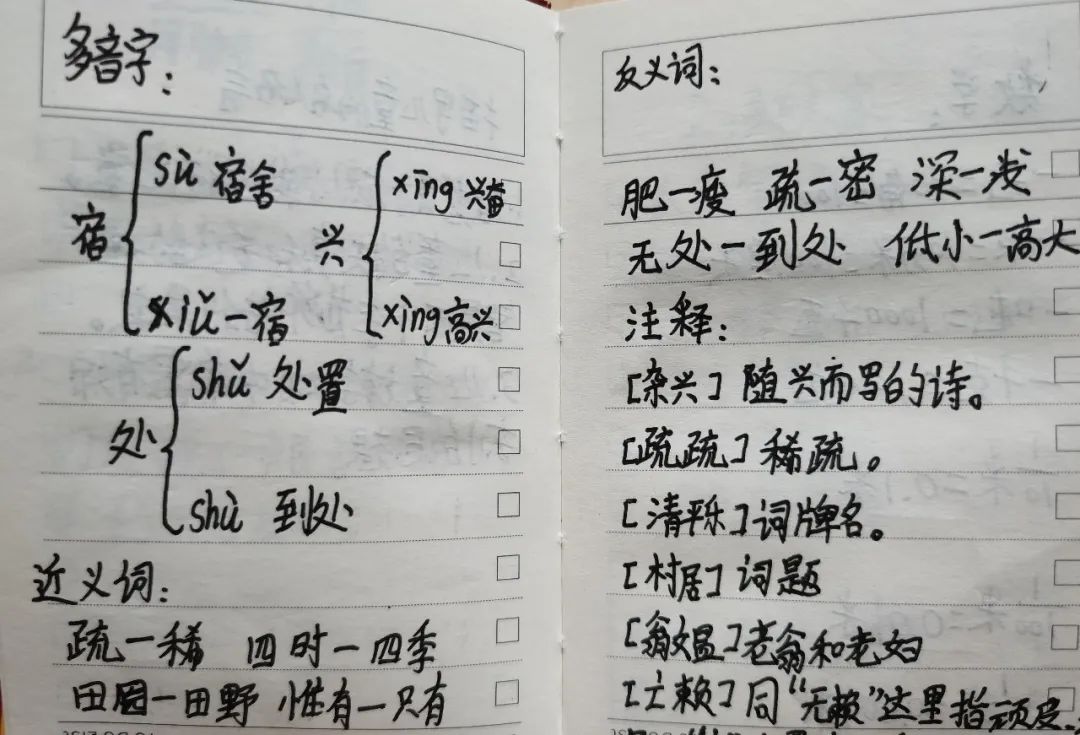 多音字：
宿 sù 宿舍
xiǔ 一宿
兴 xīng 兴奋
xìng 高兴
处 shǔ 处置
shù 到处
近义词：
疏一稀 四时一四季
田园一田野 惟有一只有
反义词：
肥一瘦 疏一密 深一浅
无处一到处 低小一高大
注释：
［杂兴］随兴而写的诗。
［疏疏］稀疏。
［清平乐］词牌名。
［村居］词题
［翁媪］老翁和老妇
［亡赖］同“无赖”这里指顽皮、